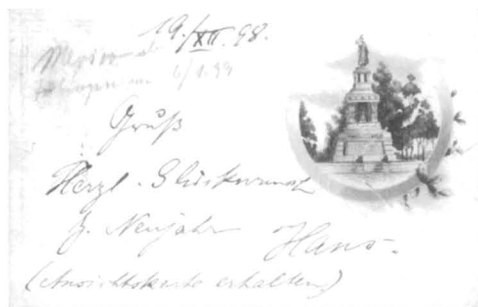 19./XII. 98.
Mexico ab
6/1.99
Gruß
Herzl. Glückwunsch
z. Neujahr Hans.
(Ansichtskarte erhalten)